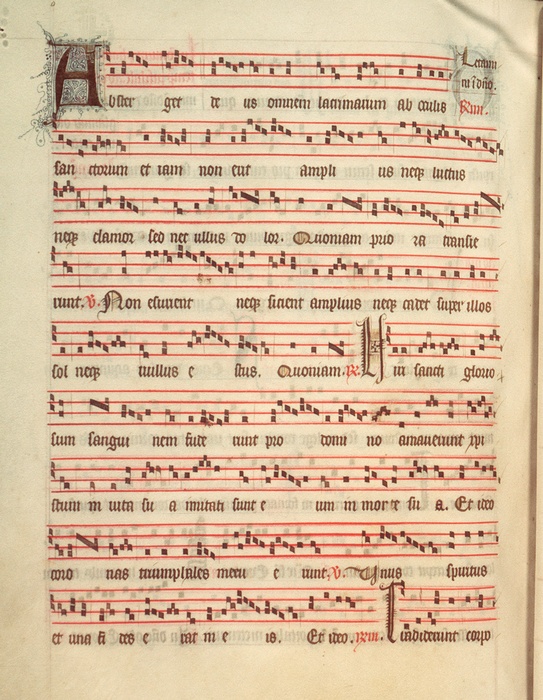 Abster get de us omnem lacrimarum ab oculis
san ctorum et iam non erit ampli us neqz luctus
neqz clamor sed nec ullus do lor. Quoniam prio ra transie
runt. V. Non esurient neqz sicient amplius neqz cadet super illos
sol neqz ullus e stus. Quoniam. R. Vii sancti glorio
sum sangui nem fude runt pro domi no amaverunt xpi
stum in vita su a imitati sunt e um in morte su a. Et ideo
coro nas triumphales meru e runt. V. Unus spiritus
et una fi des e rat in e is. Et ideo. Tradiderunt corpo